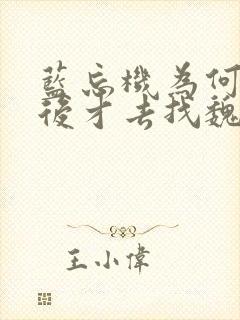 藍忘機為何
後才去找魏
王小偉